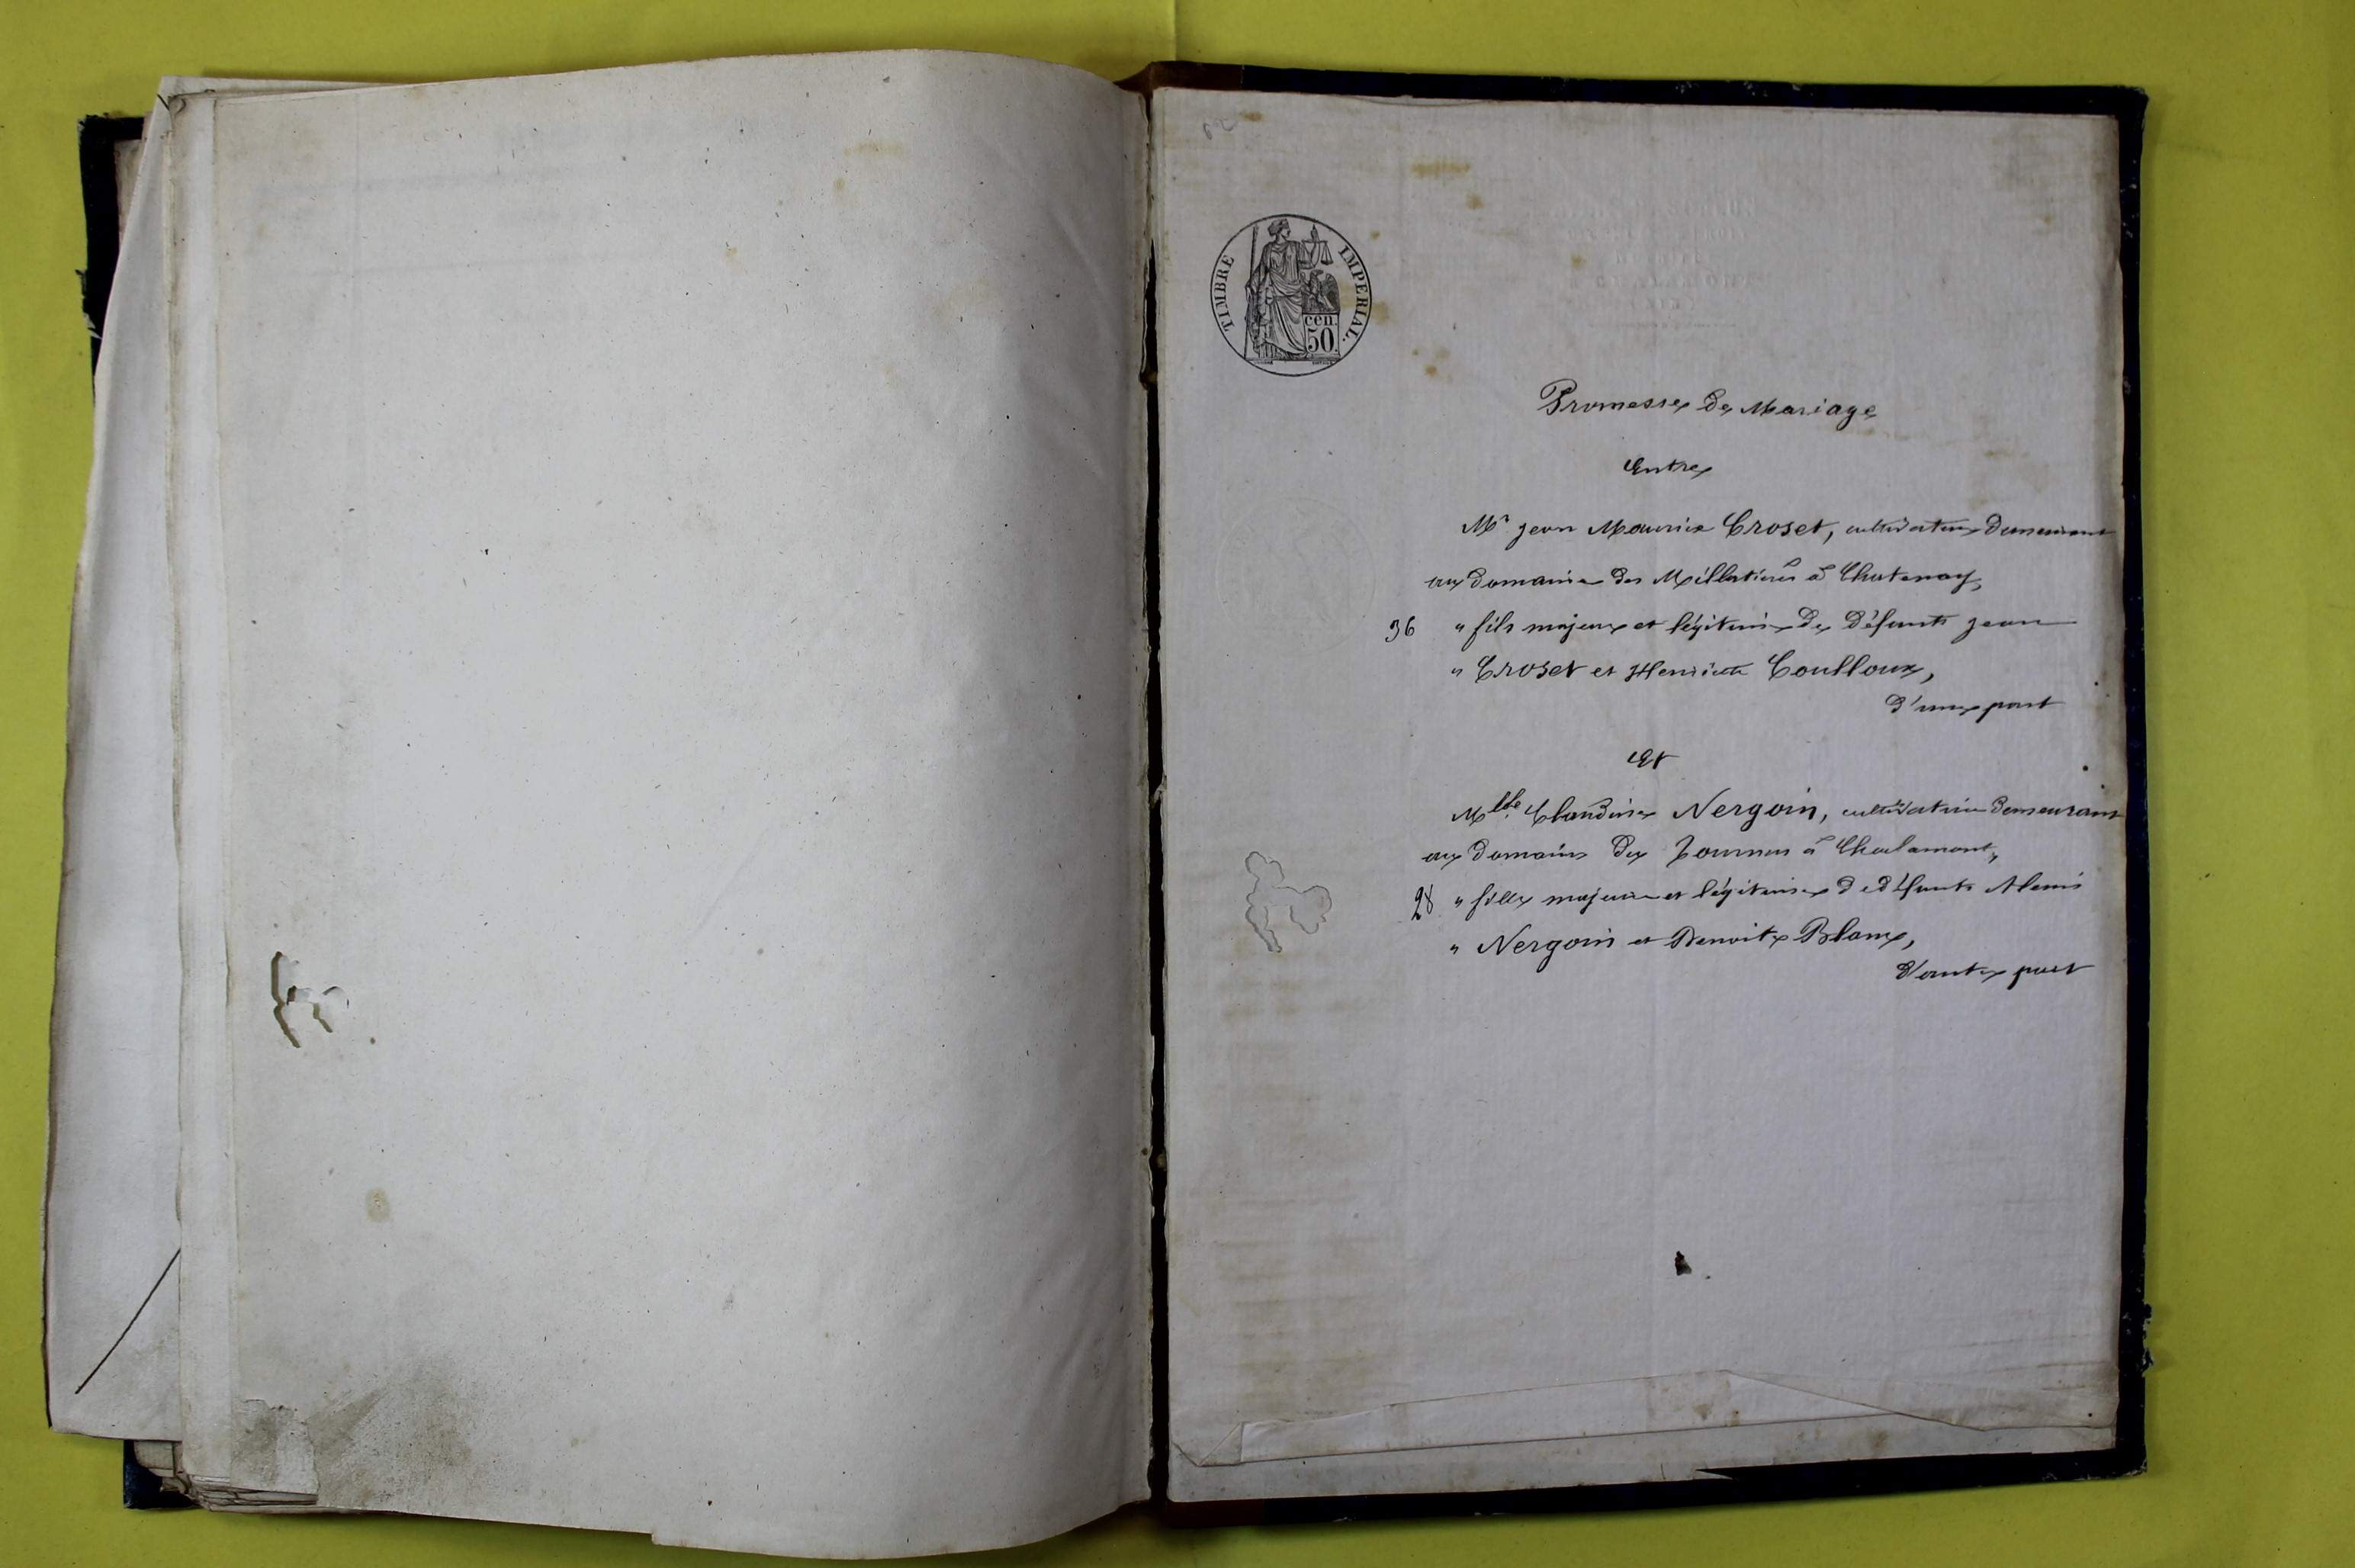 TIMBRE IMPERIAL.
cen.
50.
Promesse de Mariage
Entre
Mr Jean Maurice Crozet, cultivateur demeurant
au domaine des à Chatenay,
36 " fils majeur et légitime de défunts Jean
" Crozet et Henriette Coulloux,
d'une part
Et
Mlle Claudine Nergoin, cultivatrice demeurant
au domaine des à Chalamont,
28 " fille majeure et légitime de défunts Alexis
" Nergoin et Benoite Blanc,
d'autre part